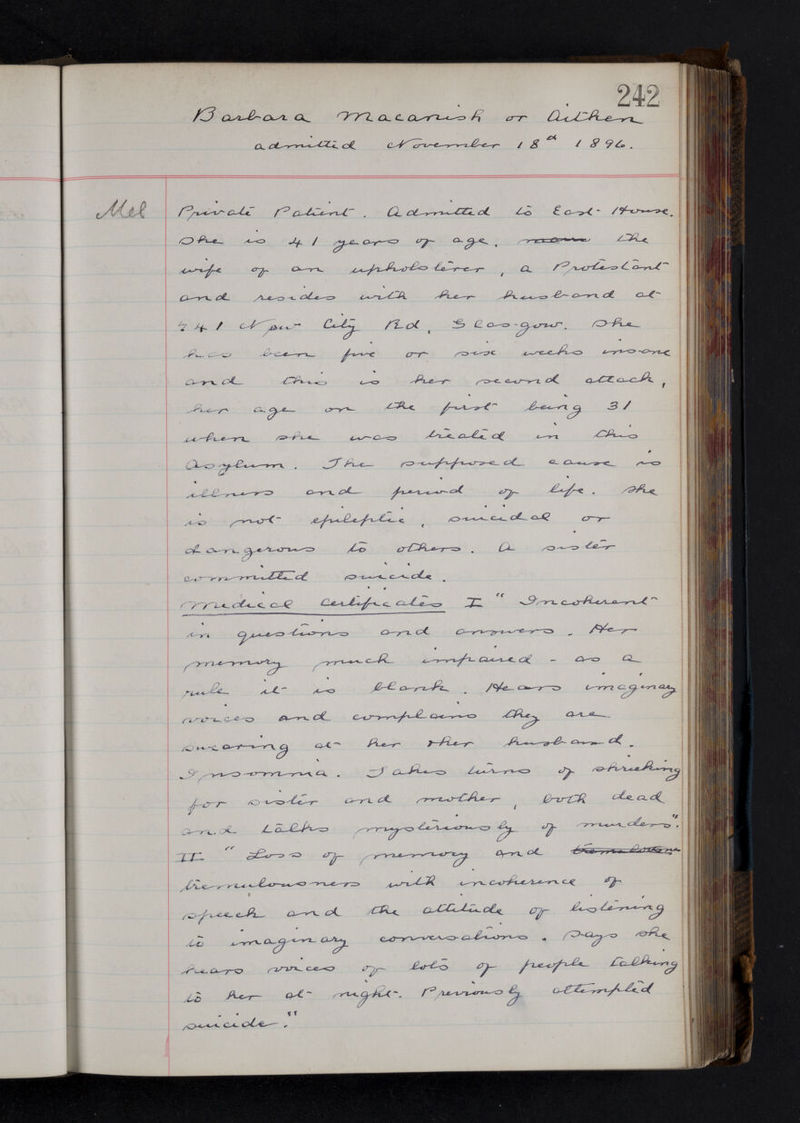 242
Barbara Macanish or Aitken
admitted November 18th 1896.
Mel
Private Patient. Admitted to East House.
She is 41 years of age, the
wife of an upholsterer, a Protestant
and resides with her husband at
41 New City Rd, Glasgow. She
has been five or six weeks insane
and this is her second attack,
her age on the first being 31
when she was treated in this
Asylum. The supposed cause is
illness and period of life. She
is not epileptic, suicidal or
dangerous to others. A sister
committed suicide.
Medical Certificates I "Incoherent
in questions and answers. Her
memory much impaired - as a
rule it is blank. Hears imaginary
voices and complains they are
swearing at her & her husband.
Insomnia. Takes turns of shrieking
for sister and mother, both dead
and talks mysteriously of murders".
II "Loss of memory and
tremulousness with incoherence of
speech and the attitude of listening
to imaginary conversations. Says she
hears voices of lots of people talking
to her at night. Previously attempted
suicide."